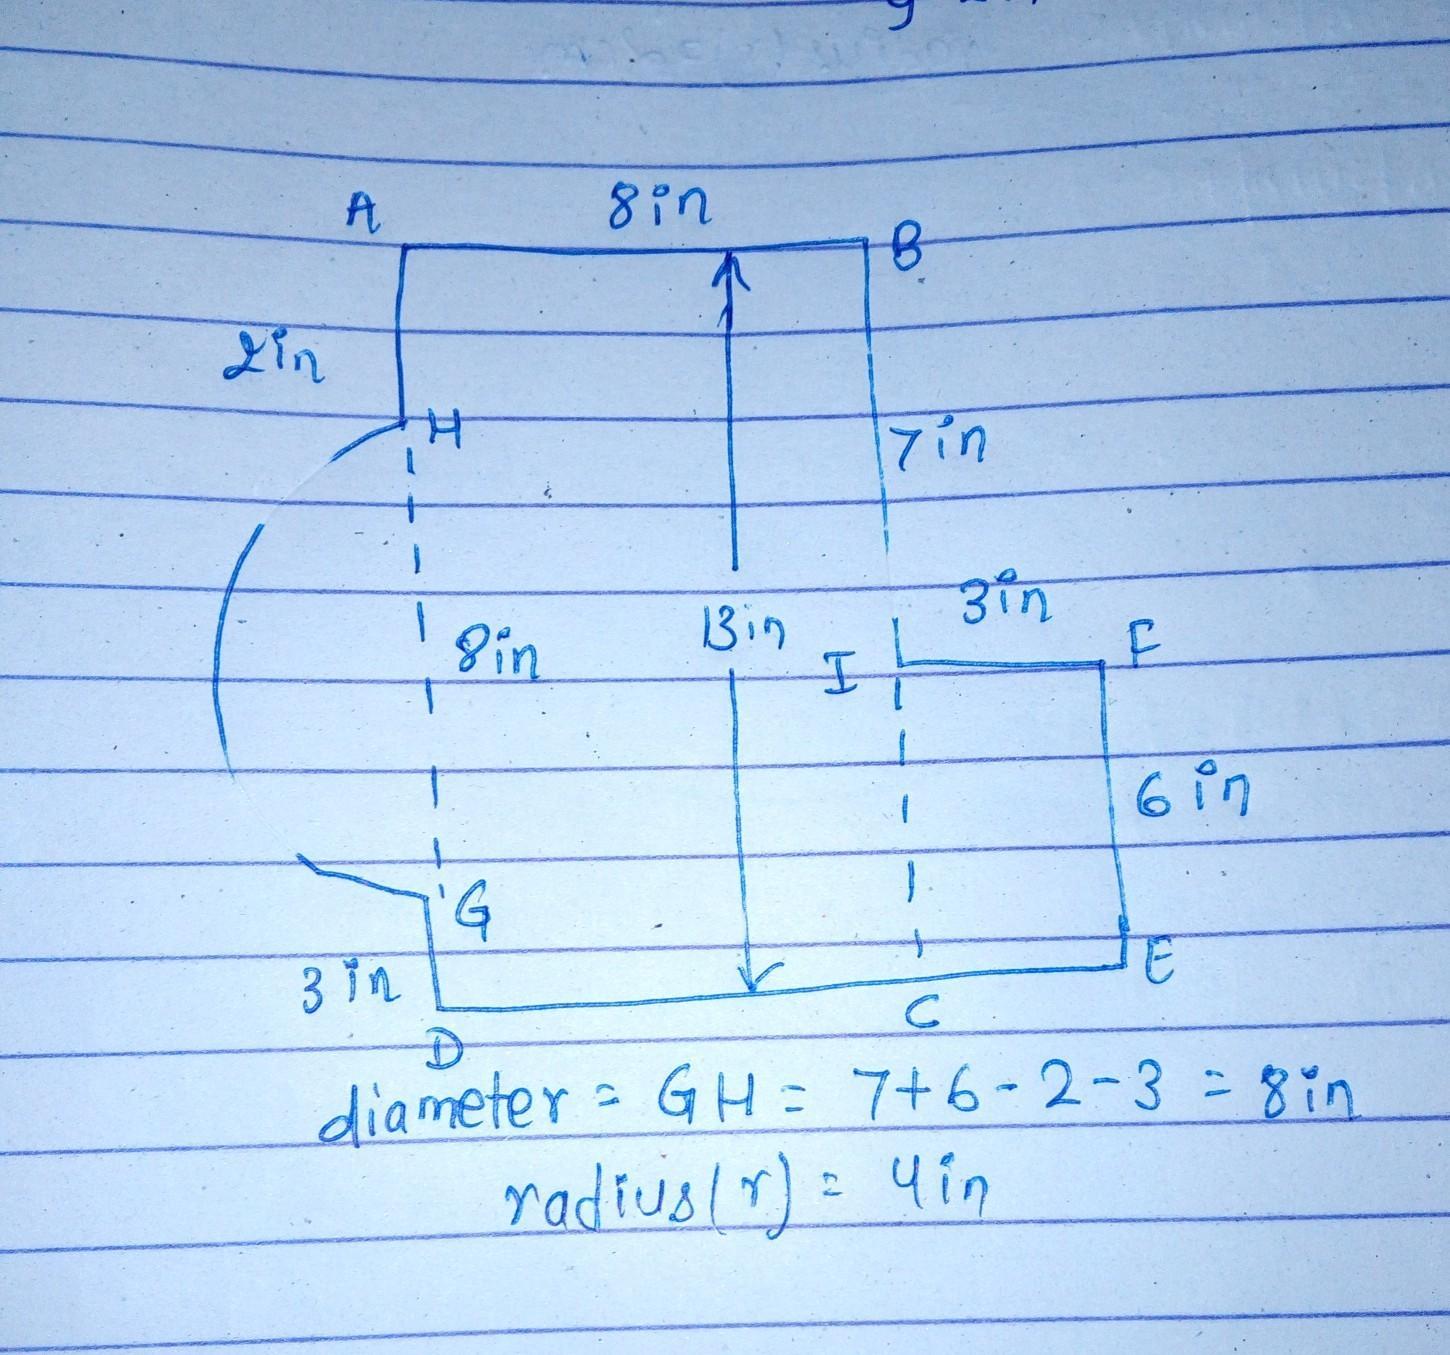 A 8in B
2in
H
7in
3in
8in 13in I F
6in
G
3in E
C
D
diameter = GH = 7+6-2-3 = 8in
radius(r) = 4in